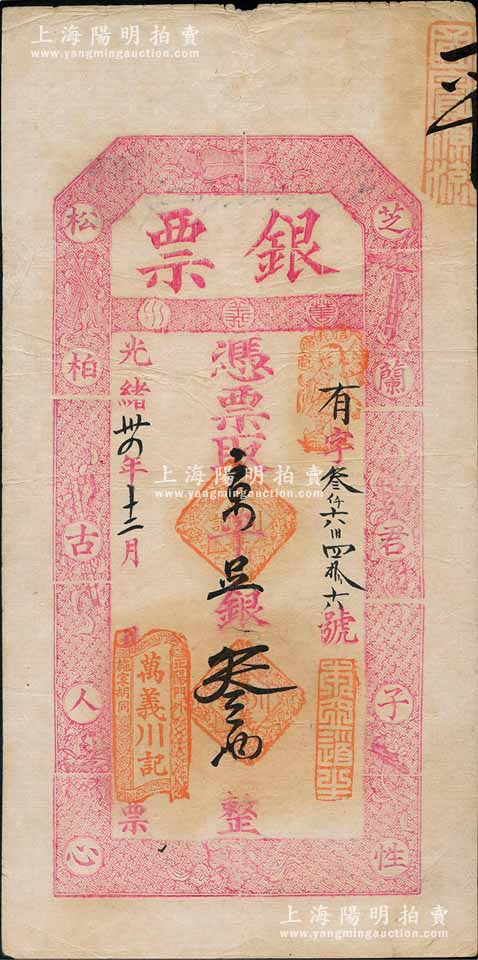 上海陽明拍賣
www.yangmingauction.com
銀票
萬義川
芝蘭君子性
松柏古人心
有字叁仟六百四拾六號
憑票取京平足銀叁兩整
光緒卅四年十二月 票
正陽門外
萬義川記
施家胡同
上海陽明拍賣
www.yangmingauction.com
上海陽明拍賣
www.yangmingauction.com